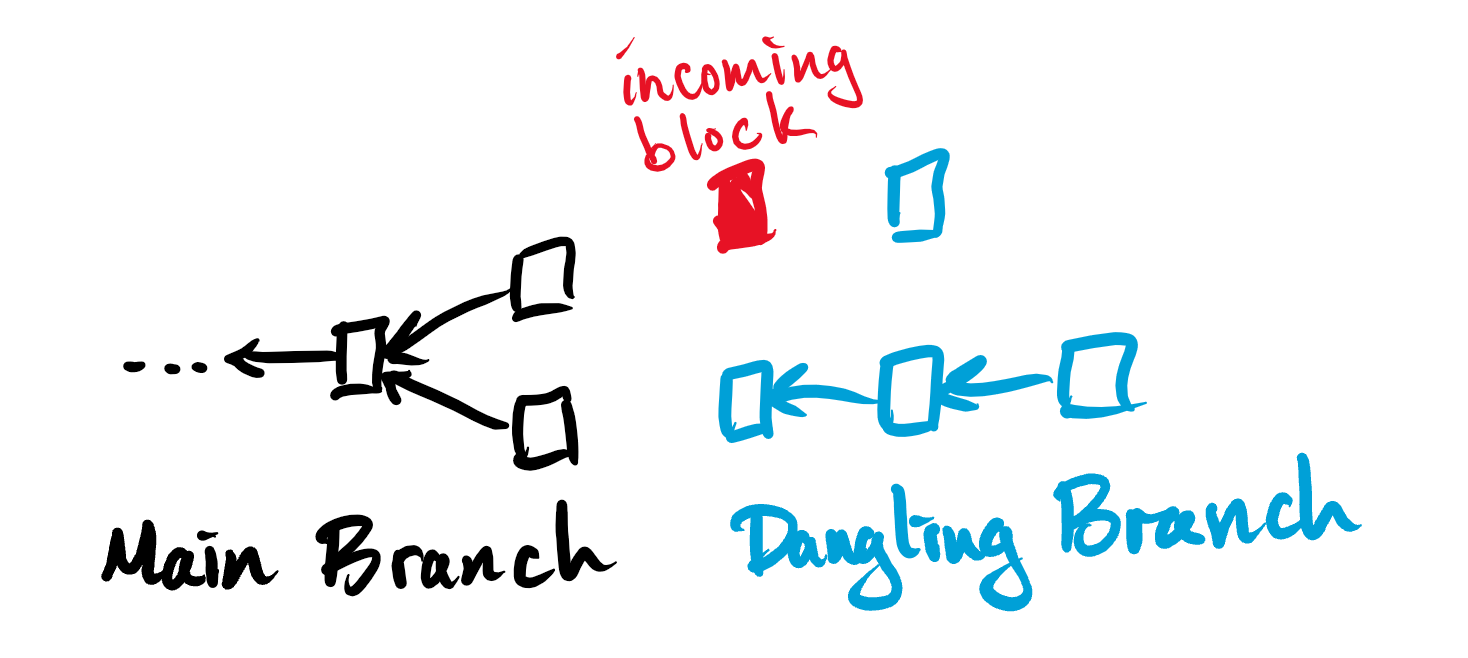 incoming
block
...
Main Branch
Dangling Branch